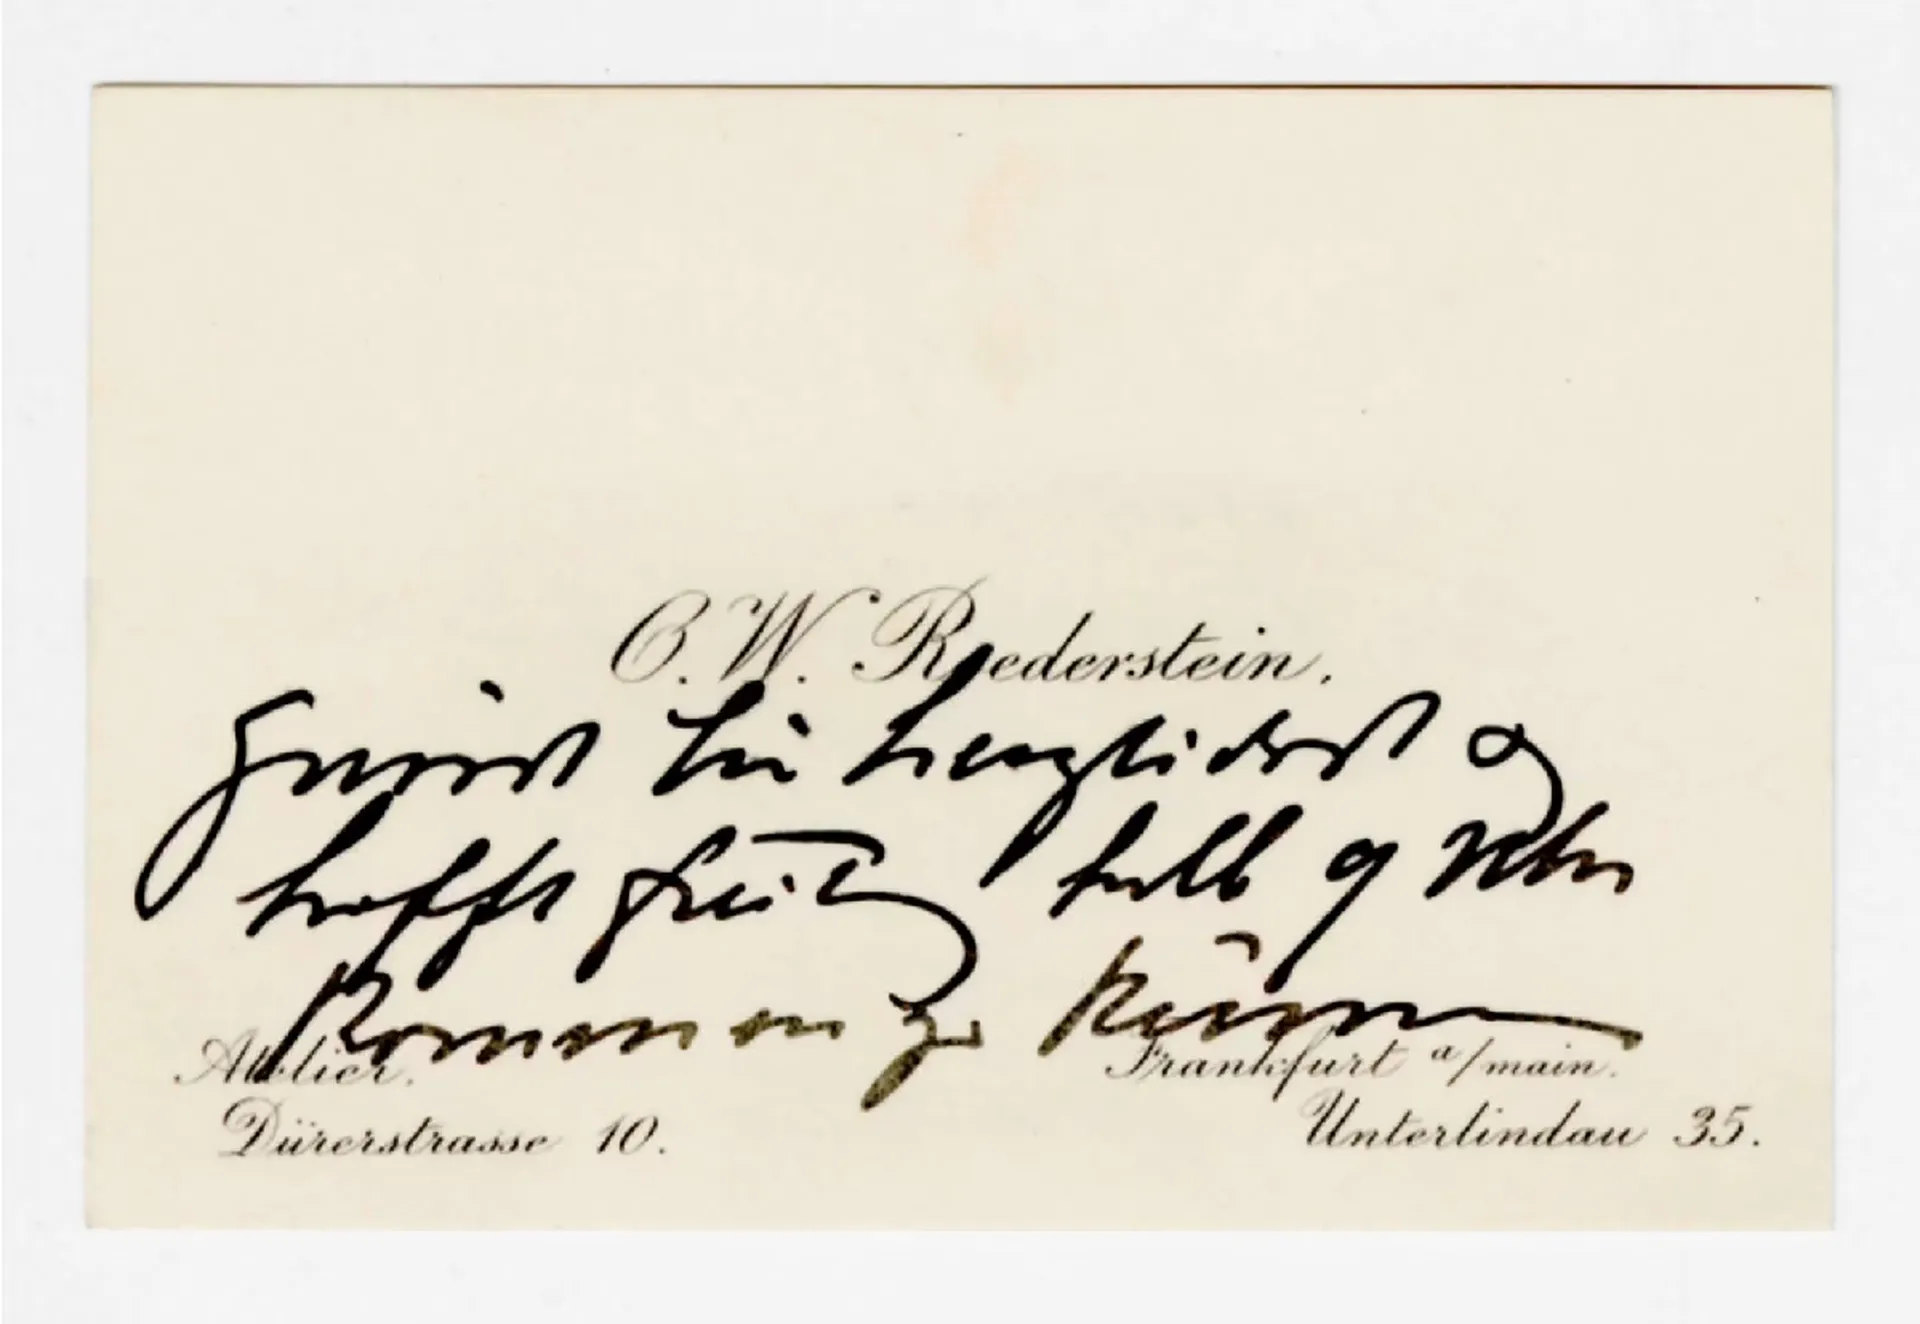 O. W. Roederstein.
grüsst Sie herzlichst &
hofft Freitag halb 9 Uhr
kommen zu können
Atelier. Frankfurt a/main.
Dürerstrasse 10. Unterlindau 35.